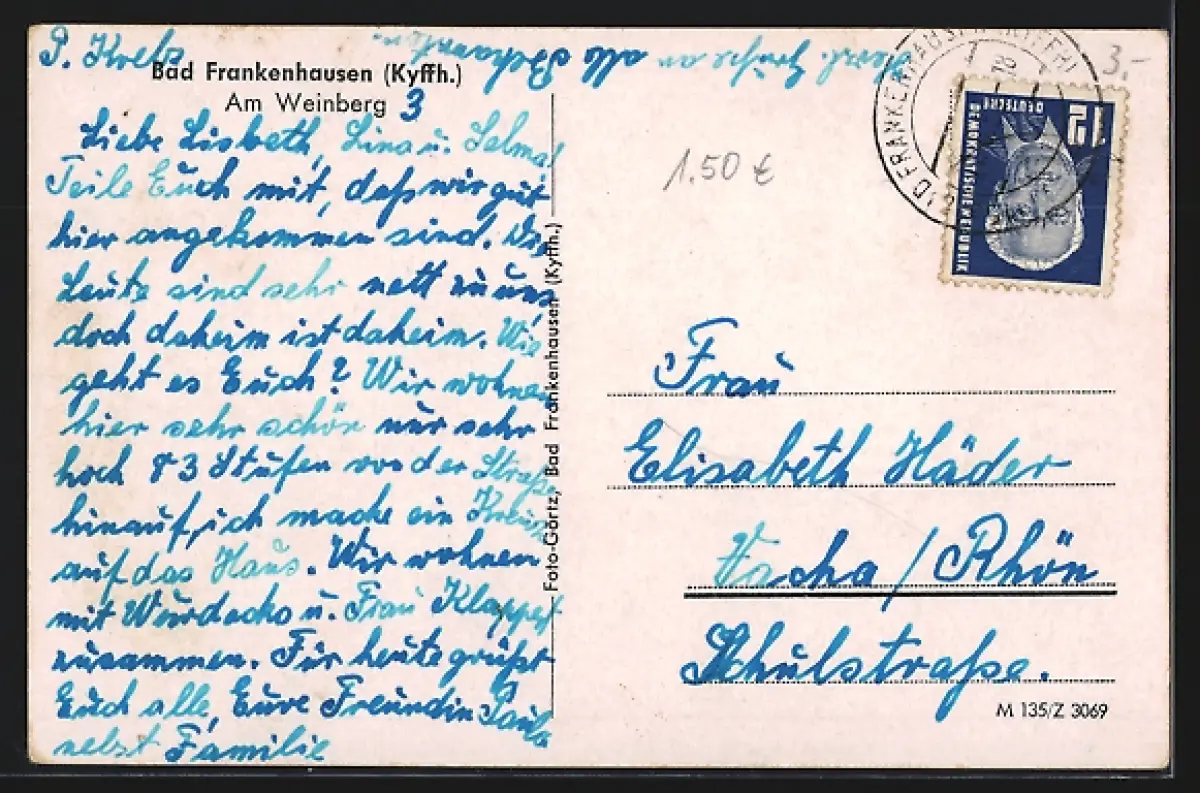 P. Krebs
Bad Frankenhausen (Kyffh.)
Am Weinberg 3
Liebe Lisbeth, Lina u. Selma!
Teile Euch mit, daß wir gut
hier angekommen sind. Die
Leute sind sehr nett zu uns,
doch daheim ist daheim. Wie
geht es Euch? Wir wohnen
hier sehr schön nur sehr
hoch 83 Stufen von der Straße
hinauf, ich mache ein Kreuz
auf das Haus. Wir wohnen
mit Wurdacko u. Frau Klapper
zusammen. Für heute grüßt
Euch alle, Eure Freundin Paula
nebst Familie
Foto-Görtz, Bad Frankenhausen (Kyffh.)
an alle
3.-
1.50 €
D FRANKENHAUSEN (KYFFH)
18
12
DEUTSCHE
DEMOKRATISCHE REPUBLIK
Frau
Elisabeth Häder
Vacha / Rhön
Schulstraße.
M 135/Z 3069